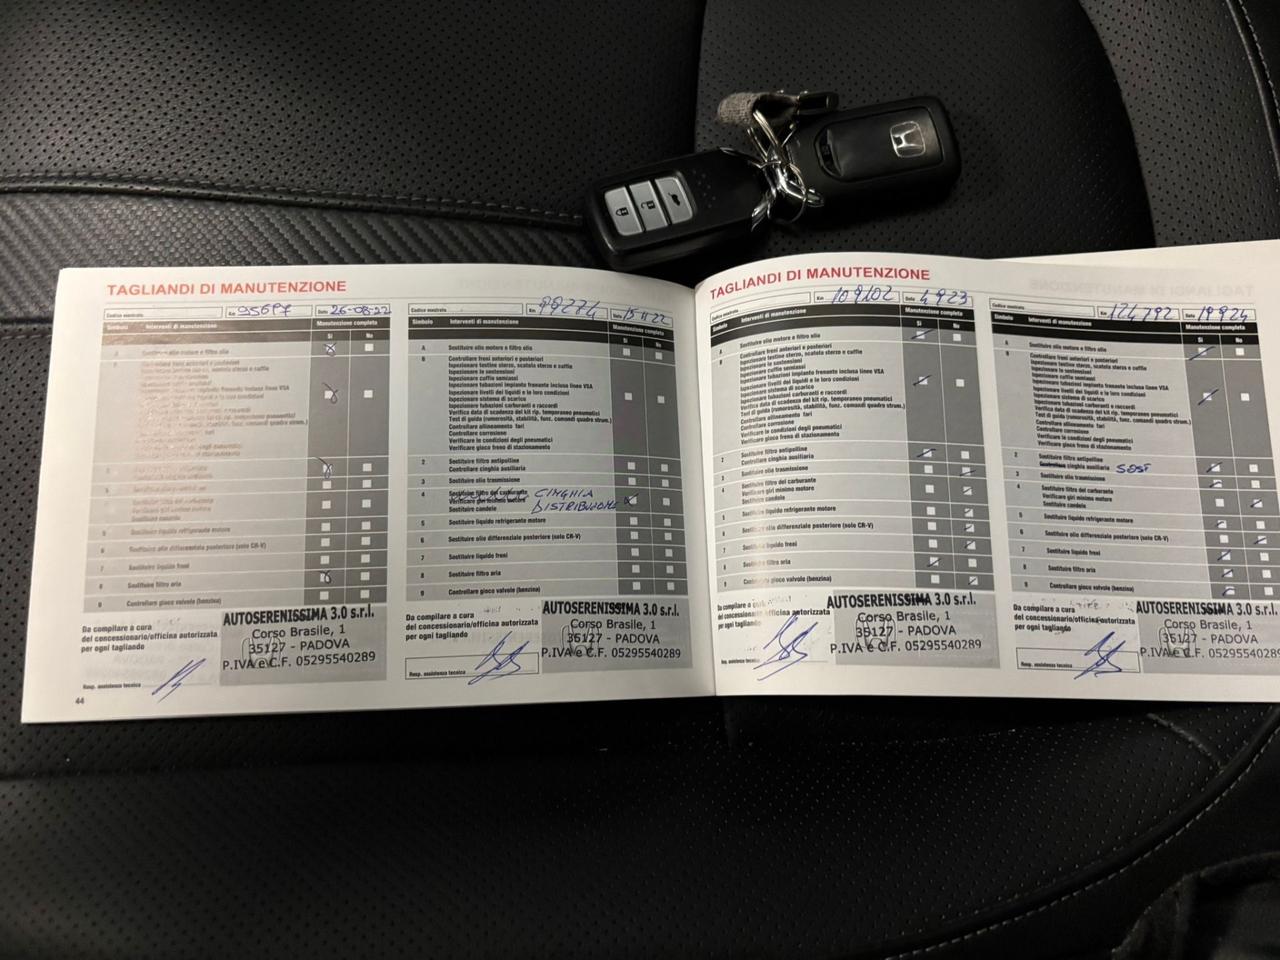 TAGLIANDI DI MANUTENZIONE
Codice maestrato Km 95697 Data 26-08-22
Simbolo Interventi di manutenzione Manutenzione completa
Si No
A Sostituire olio motore e filtro olio
B Controllare freni anteriori e posteriori
Ispezionare testine sterzo, scatola sterzo e cuffie
inclusa linee VSA
e le loro condizioni
Sostituire olio differenziale posteriore (solo CR-V)
7 Sostituire liquido freni
8 Sostituire filtro aria
9 Controllare gioco valvole (benzina)
Da compilare a cura
del concessionario/officina autorizzata
per ogni tagliando
Resp. assistenza tecnica
AUTOSERENISSIMA 3.0 s.r.l.
Corso Brasile, 1
35127 - PADOVA
P.IVA e C.F. 05295540289
44
Km 99274 Data 15-11-22
Simbolo Interventi di manutenzione Manutenzione completa
Si No
A Sostituire olio motore e filtro olio
B Controllare freni anteriori e posteriori
Ispezionare testine sterzo, scatola sterzo e cuffie
Ispezionare le sospensioni
Ispezionare cuffie semiassi
Ispezionare tubazioni impianto frenante inclusa linee VSA
Ispezionare livelli dei liquidi e le loro condizioni
Ispezionare sistema di scarico
Ispezionare tubazioni carburanti e raccordi
Verifica data di scadenza del kit rip. temporaneo pneumatici
Test di guida (rumorosità, stabilità, funz. comandi quadro strum.)
Controllare allineamento fari
Controllare corrosione
Verificare le condizioni degli pneumatici
Verificare gioco freno di stazionamento
2 Sostituire filtro antipolline
Controllare cinghia ausiliaria
3 Sostituire olio trasmissione
4 Sostituire filtro del carburante CINGHIA
Verificare giri minimo motore DISTRIBUZIONE
Sostituire candele
5 Sostituire liquido refrigerante motore
6 Sostituire olio differenziale posteriore (solo CR-V)
7 Sostituire liquido freni
8 Sostituire filtro aria
9 Controllare gioco valvole (benzina)
Da compilare a cura
del concessionario/officina autorizzata
per ogni tagliando
Resp. assistenza tecnica
AUTOSERENISSIMA 3.0 s.r.l.
Corso Brasile, 1
35127 - PADOVA
P.IVA e C.F. 05295540289
TAGLIANDI DI MANUTENZIONE
Km 109102 Data 4 9 23
Simbolo Interventi di manutenzione Manutenzione completa
Si No
A Sostituire olio motore e filtro olio
B Controllare freni anteriori e posteriori
Ispezionare testine sterzo, scatola sterzo e cuffie
Ispezionare le sospensioni
Ispezionare cuffie semiassi
Ispezionare tubazioni impianto frenante inclusa linee VSA
Ispezionare livelli dei liquidi e le loro condizioni
Ispezionare sistema di scarico
Ispezionare tubazioni carburanti e raccordi
Verifica data di scadenza del kit rip. temporaneo pneumatici
Test di guida (rumorosità, stabilità, funz. comandi quadro strum.)
Controllare allineamento fari
Controllare corrosione
Verificare le condizioni degli pneumatici
Verificare gioco freno di stazionamento
2 Sostituire filtro antipolline
Controllare cinghia ausiliaria
3 Sostituire olio trasmissione
4 Sostituire filtro del carburante
Verificare giri minimo motore
Sostituire candele
5 Sostituire liquido refrigerante motore
6 Sostituire olio differenziale posteriore (solo CR-V)
7 Sostituire liquido freni
8 Sostituire filtro aria
9 Controllare gioco valvole (benzina)
Da compilare a cura
del concessionario/officina autorizzata
per ogni tagliando
Resp. assistenza tecnica
AUTOSERENISSIMA 3.0 s.r.l.
Corso Brasile, 1
35127 - PADOVA
P.IVA e C.F. 05295540289
Km 124792 Data 19 9 24
Simbolo Interventi di manutenzione Manutenzione completa
Si No
A Sostituire olio motore e filtro olio
B Controllare freni anteriori e posteriori
Ispezionare testine sterzo, scatola sterzo e cuffie
Ispezionare le sospensioni
Ispezionare cuffie semiassi
Ispezionare tubazioni impianto frenante inclusa linee VSA
Ispezionare livelli dei liquidi e le loro condizioni
Ispezionare sistema di scarico
Ispezionare tubazioni carburanti e raccordi
Verifica data di scadenza del kit rip. temporaneo pneumatici
Test di guida (rumorosità, stabilità, funz. comandi quadro strum.)
Controllare allineamento fari
Controllare corrosione
Verificare le condizioni degli pneumatici
Verificare gioco freno di stazionamento
2 Sostituire filtro antipolline
Controllare cinghia ausiliaria SOST
3 Sostituire olio trasmissione
4 Sostituire filtro del carburante
Verificare giri minimo motore
Sostituire candele
5 Sostituire liquido refrigerante motore
6 Sostituire olio differenziale posteriore (solo CR-V)
7 Sostituire liquido freni
8 Sostituire filtro aria
9 Controllare gioco valvole (benzina)
Da compilare a cura
del concessionario/officina autorizzata
per ogni tagliando
Resp. assistenza tecnica
AUTOSERENISSIMA 3.0 s.r.l.
Corso Brasile, 1
35127 - PADOVA
P.IVA e C.F. 05295540289